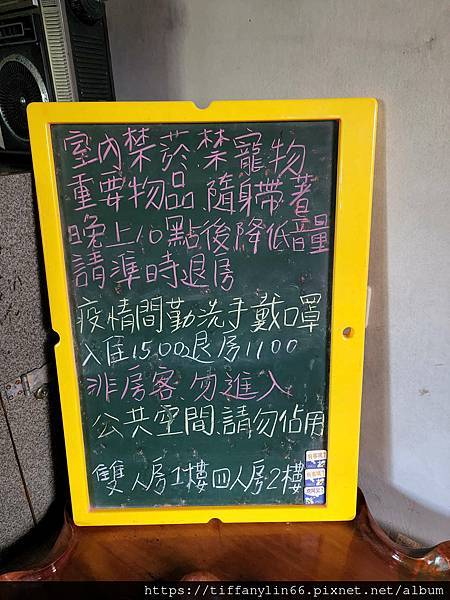 室內禁菸禁寵物
重要物品隨身帶著
晚上10點後降低音量
請準時退房
疫情間勤洗手戴口罩
入住1500退房1100
非房客、勿進入
公共空間、請勿佔用
雙人房1樓四人房2樓
https://tiffanylin66.pixnet.net/album